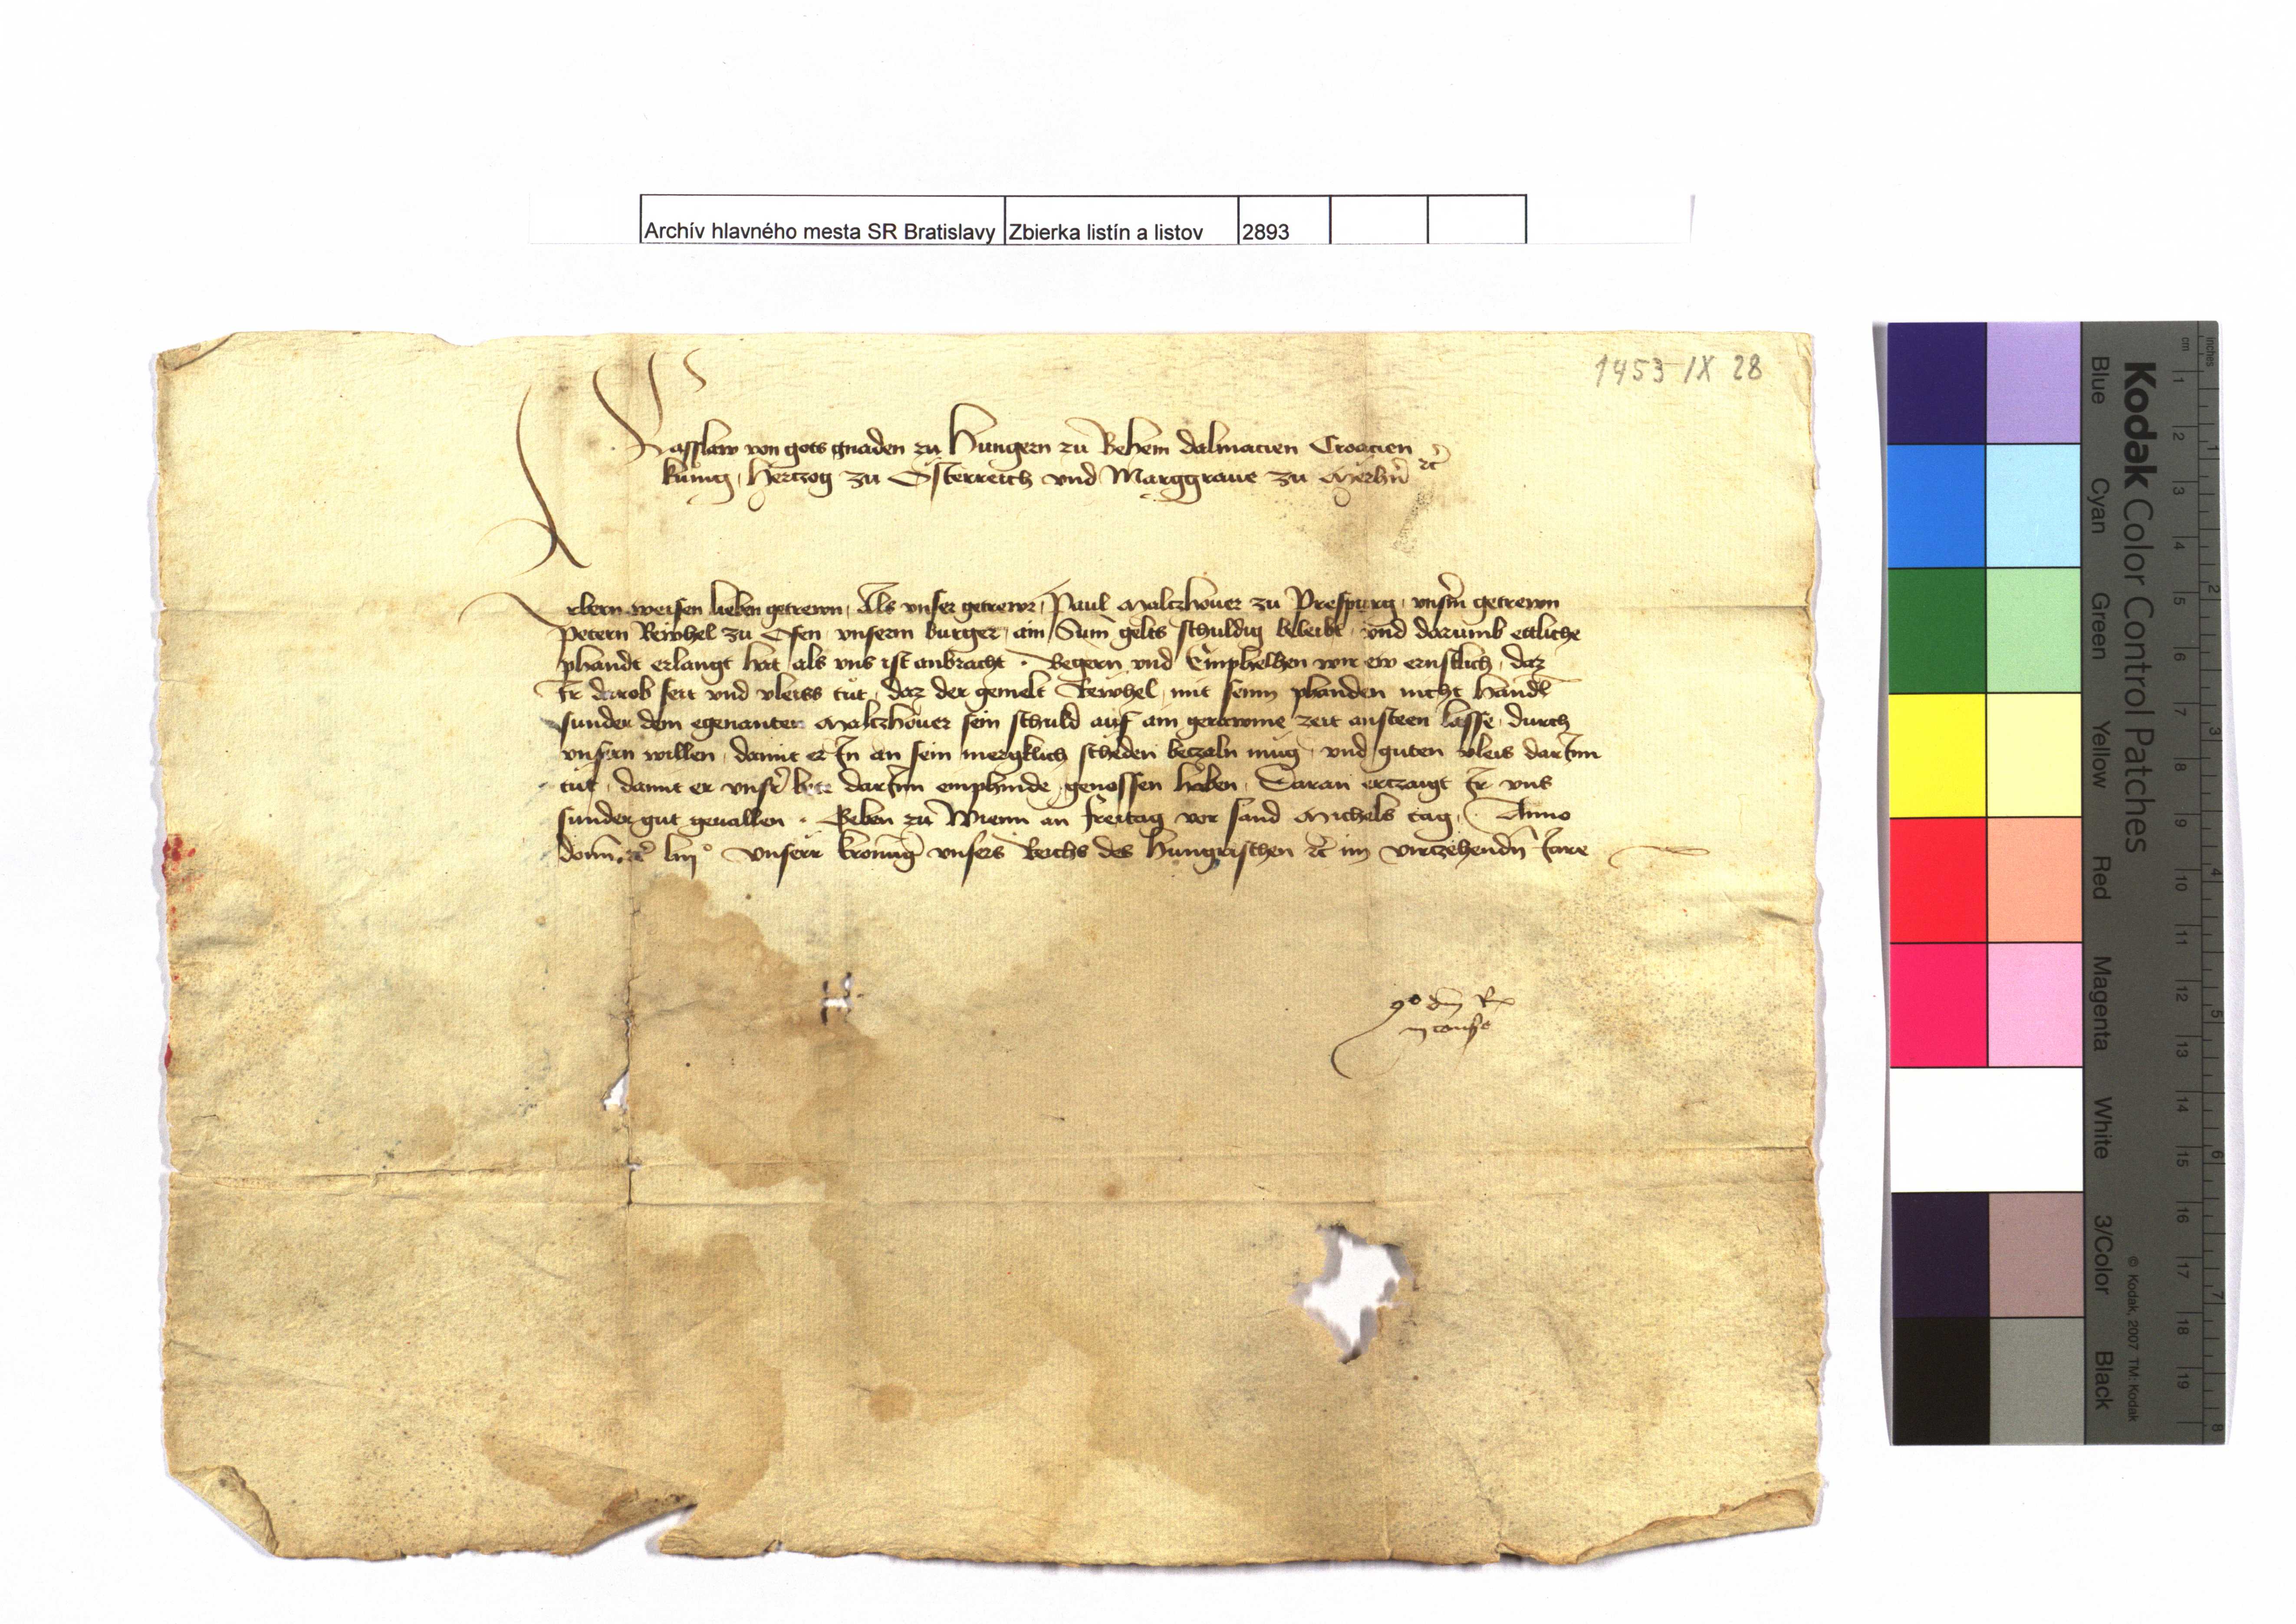 Archív hlavného mesta SR Bratislavy Zbierka listín a listov 2893
1453 IX 28
Lasslaw von gots gnaden zu Hungern zu Behem Dalmacien Croacien
kunig, Hertzog zu Österreich vnd Marggraue zu Merhern etc
Erbern weisen lieben getrewn, Als vnser getrewr, Paul Maltzhouer zu Prespurg, vnserm getrewn
Petern Rewhel zu Ofen vnserm burger, ain Sum gelts schuldig beleibt, vnd darumb ettliche
phandt erlangt hat als vns ist anbracht. Begern vnd Emphelhen wir ew ernstlich, daz
Ir darob seit vnd vleiss tut, daz der gemelt Rewhel, mit seinn phanden nicht handl
sunder dem egenanten Maltzhouer sein schuld auf ain gerawme zeit ansteen lasse, durch
vnsern willen, damit er In an sein mergklich scheden betzaln mug, vnd guten vleis darInn
tut, damit er vnsr bete darInn emphinde genossen haben, Daran ertzaigt Ir vns
sunder gut geuallen. Geben zu Wienn an Freitag vor sand Michels tag, Anno
domini etc liij° Vnserr kronung vnsers Reichs des Hungrischen etc im virtzehendn Jare
Kodak Color Control Patches
Blue Cyan Green Yellow Red Magenta White 3/Color Black
© Kodak, 2007 TM: Kodak
inches 1 2 3 4 5 6 7 8
cm 1 2 3 4 5 6 7 8 9 10 11 12 13 14 15 16 17 18 19